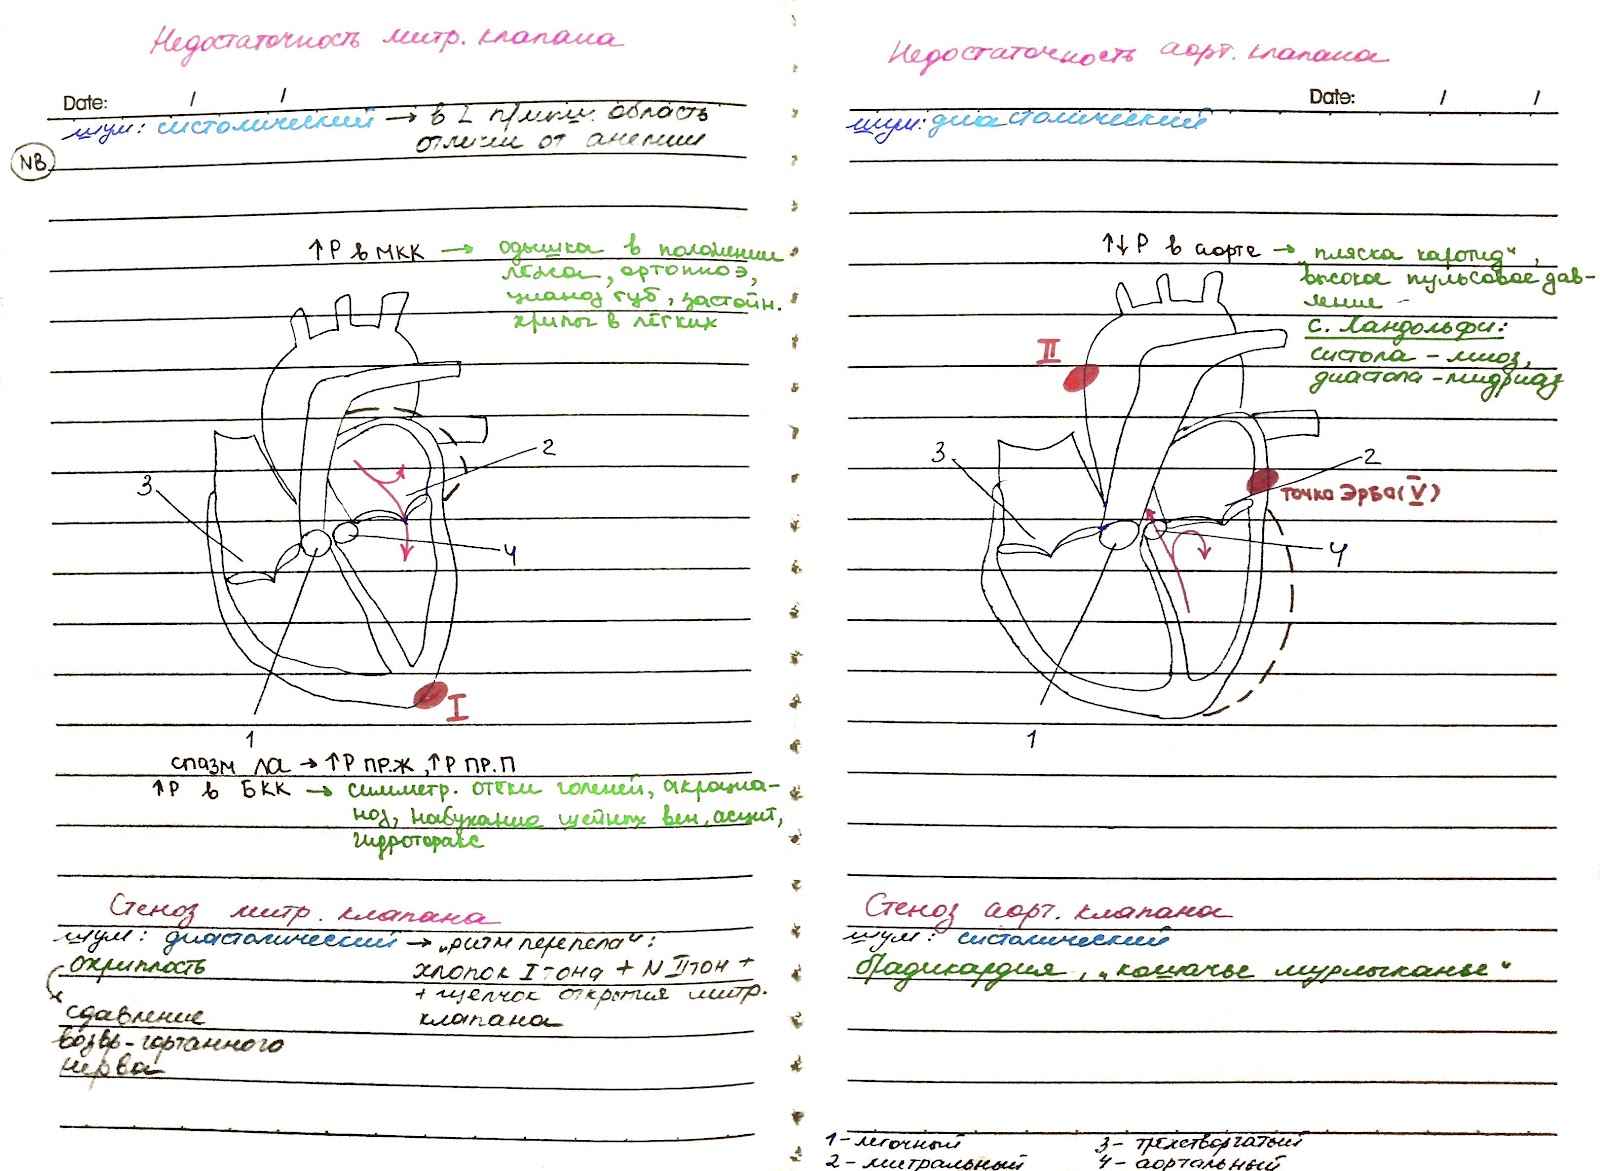 Недостаточность митр. клапана
Date: / /
шум: систолический → в L п/мыш. область
отличи от анемии
NB
↑P в МКК → одышка в положении
лёжа, ортопноэ,
цианоз губ, застойн.
хрипы в лёгких
2
3
4
I
1
спазм ЛА → ↑P ПР.Ж, ↑P ПР.П
↑P в БКК → симметр. отёки голеней, акроциа-
ноз, набухание шейных вен, асцит,
гидроторакс
Стеноз митр. клапана
шум: диастолический → „ритм перепела“:
охриплость
хлопок I тона + N II тон +
+ щелчок открытия митр.
клапана
сдавление
возвр-гортанного
нерва
Недостаточность аорт. клапана
Date: / /
шум: диастолический
↑↓P в аорте → „пляска каротид“,
высокое пульсовое дав-
ление -
с. Ландольфи:
систола - миоз,
диастола - мидриаз
II
3
2
точка Эрба (V)
4
1
Стеноз аорт. клапана
шум: систолический
брадикардия, „кошачье мурлыканье“
1 - легочный
2 - митральный
3 - трёхстворчатый
4 - аортальный